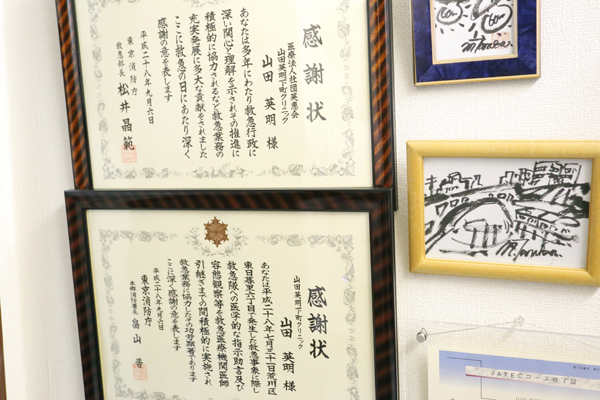 感謝状
医療法人社団英悪会
山田英明下町クリニック
山田 英明 様
あなたは多年にわたり救急行政に
深い関心と理解を示されその推進に
積極的に協力されるなど救急業務の
充実発展に多大な貢献をされました
ここに救急の日にあたり深く
感謝の意を表します
平成二十八年九月六日
東京消防庁
救急部長 松井晶範
感謝状
山田英明下町クリニック
山田 英明 様
あなたは平成二十八年七月三十一日荒川区
東日暮里六丁目で発生した救急事象に際し
救急隊への医学的な指示助言及び
容態観察等を救急医療機関医師
引継ぎまでの間積極的に実施され
救急業務に協力したその功労顕著であります
ここに深く感謝の意を表します
平成二十八年九月九日
東京消防庁
JATECコース修了証